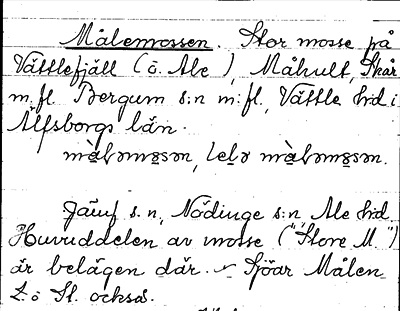 Målemossen. Stor mosse på
Vättlefjäll (ö. Ale), Måhult, Skår
m. fl. Bergum s:n m: fl, Vättle hd i
Älfsborgs län.
màləmo̱sən, lelə màləmo̱sən.
Jämf s. n, Nödinge s:n Ale hd.
Huvuddelen av mosse ("Store M.")
är belägen där. Sjöar Målen
L. o St. också.